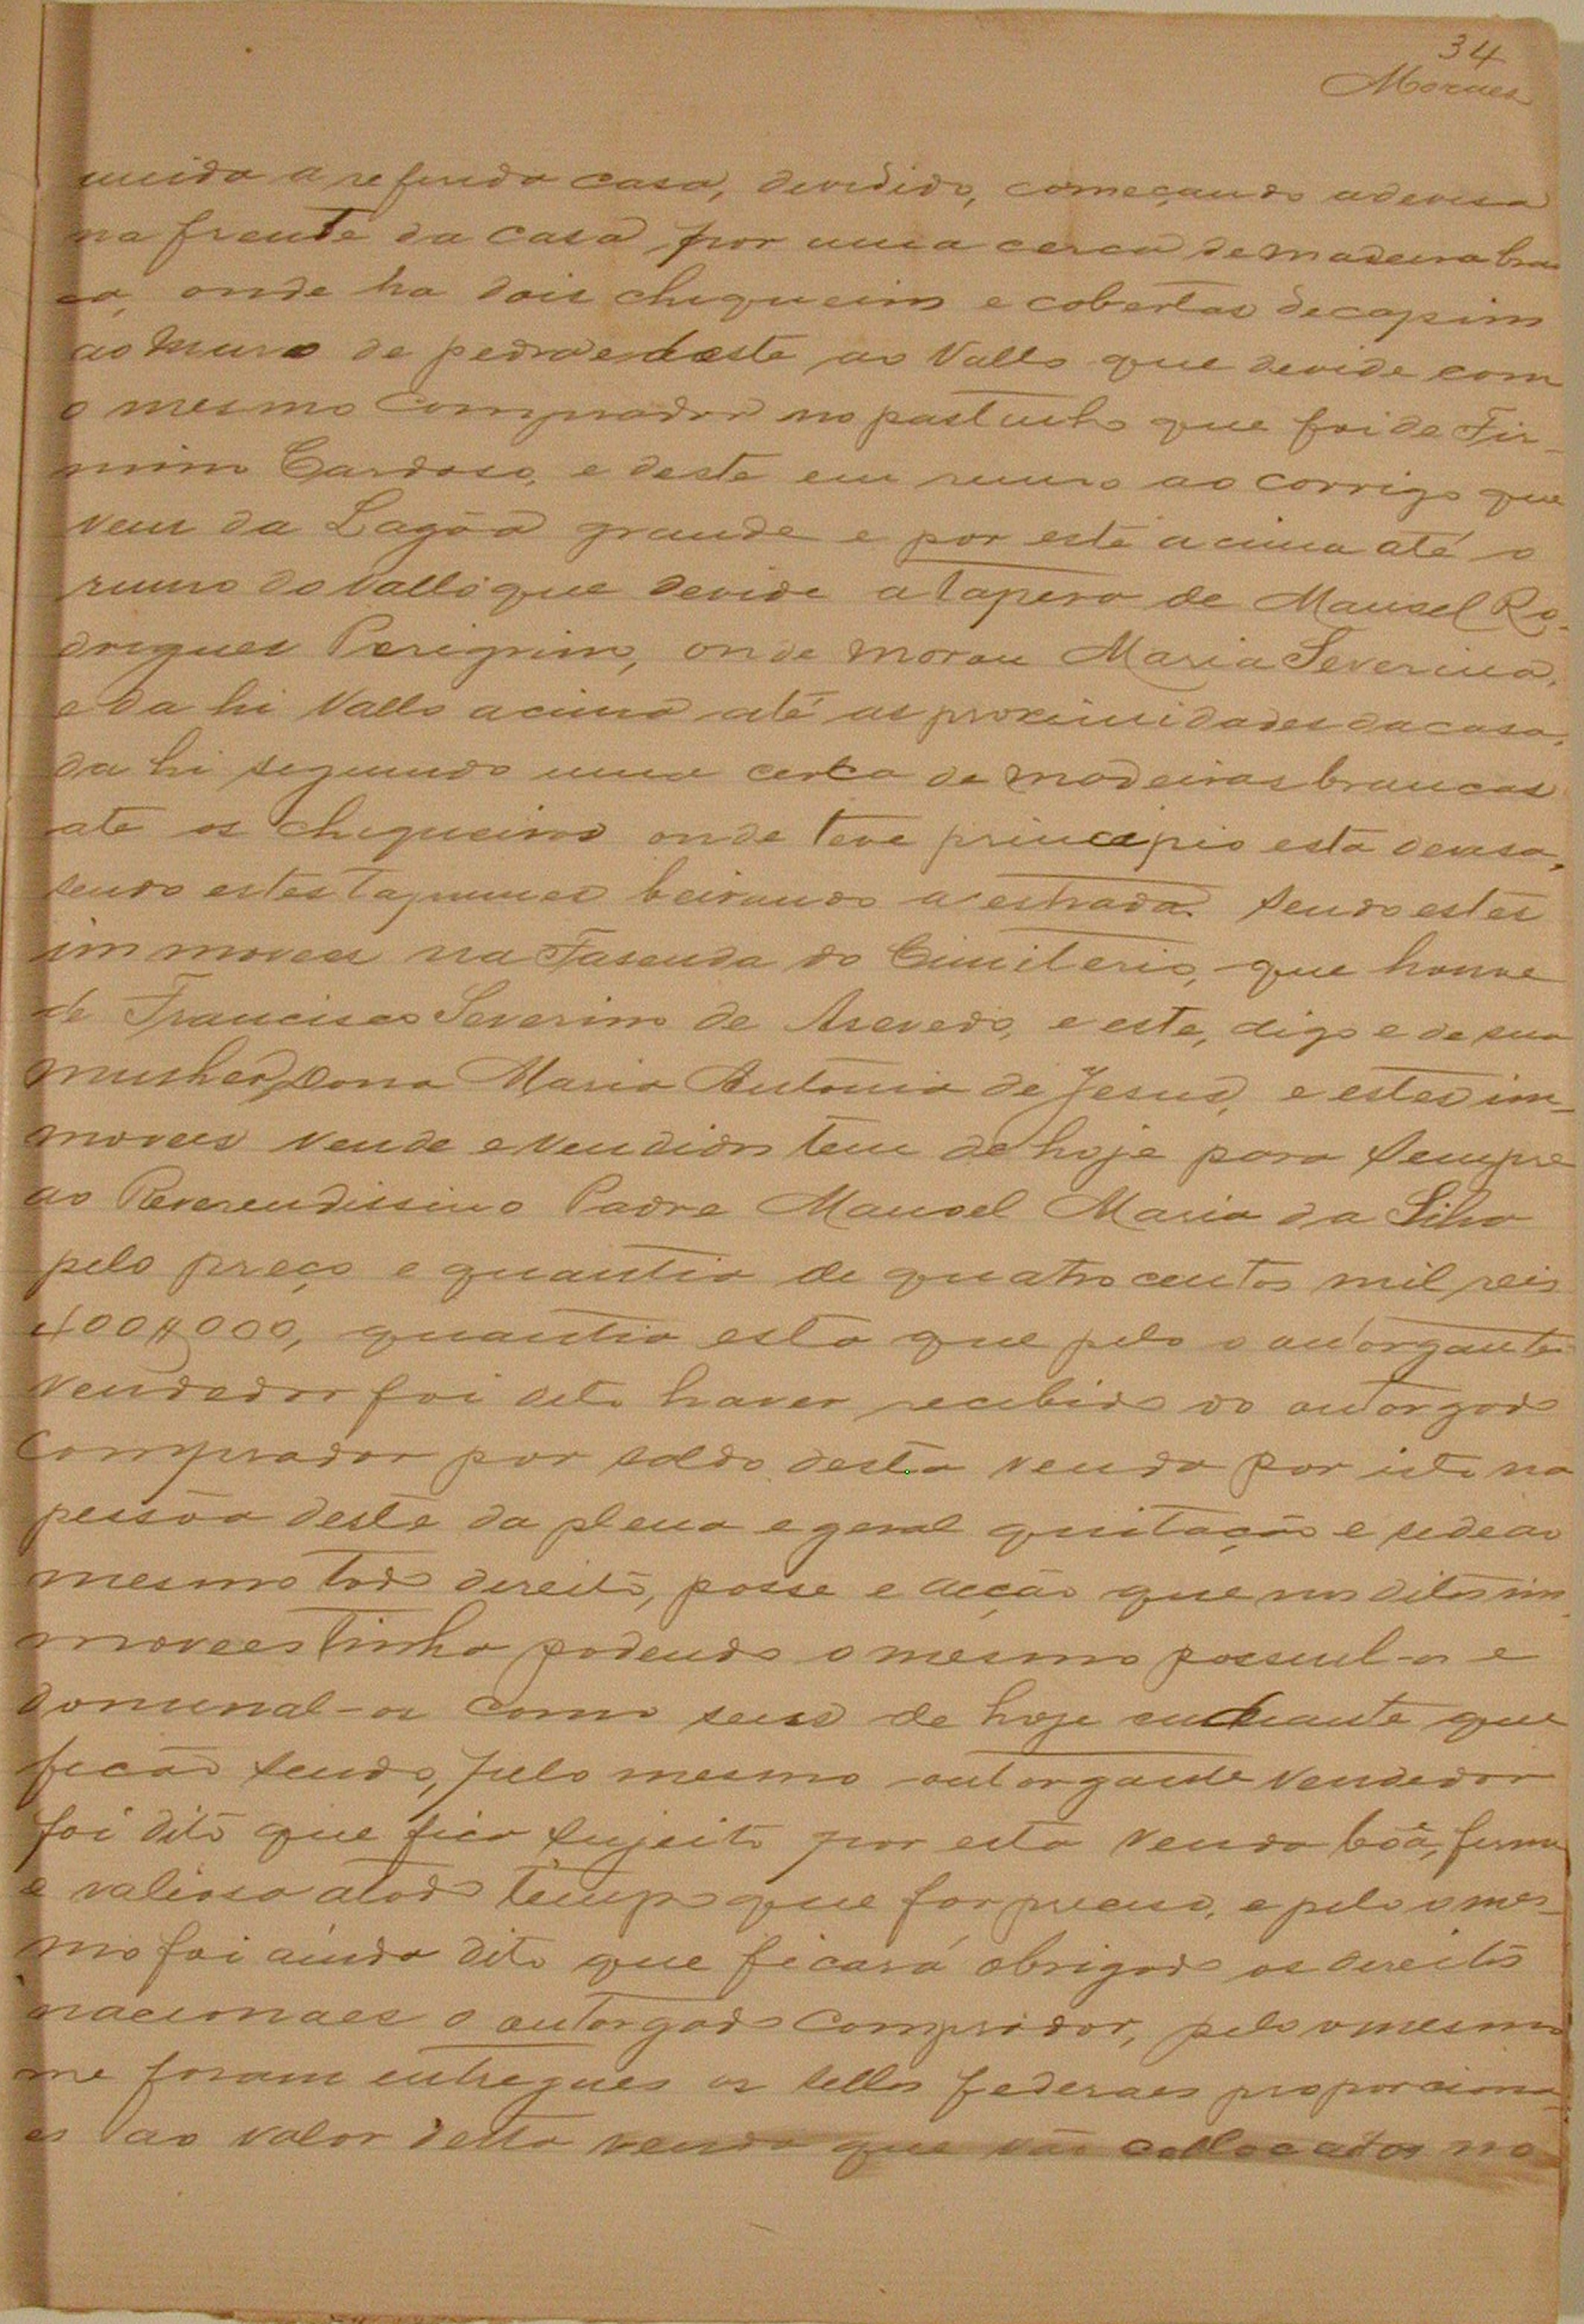 34
Moraes
unida a referida casa, devidido, começando adevisa
na frente da casa por uma cerca de madeira bran
ca, onde ha dois chiqueiros e cobertas de capim
ao muro de pedra e deste ao Vallo que devide com
o mesmo Comprador no pastinho que foi de Fir_
mino Cardoso, e deste em rumo ao corrigo que
vem da Lagôa grande e por este acima até o
rumo do Vallo que devide a tapera de Manoel Ro_
drigues Perigrino, onde morou Maria Severina,
e da hi Vallo acima até as proximidades da casa,
da hi seguindo uma cerca de madeiras brancas
até os chiqueiros onde teve principio esta devisa,
sendo estes tapumes beirando a estrada. Sendo estes
immoveis na Fasenda do Cimiterio, que houve
de Francisco Severino de Asevedo, e este, digo e de sua
mulher, Dona Maria Antonia de Jesus, e estes im_
moveis vende e vendidos tem de hoje para sempre
ao Reverendissimo Padre Manoel Maria da Silva
pelo preço e quantia de quatro centos mil reis
400$000, quantia esta que pelo o outorgante
Vendedor foi dito haver recebido do outorgado
Comprador por saldo desta venda por isto na
pessôa deste da plena e geral quitação e sede ao
mesmo todo direito, posse e acção que nos ditos im
moveis tinha podendo o mesmo possuil-os e
dominal-os como seus de hoje endiante que
ficão sendo, pelo mesmo outorgante Vendedor
foi dito que fica sujeito por esta venda bôa, firme
e valiosa atodo tempo que for preciso, e pelo o mes_
mo foi ainda dito que ficará obrigado os direitos
nacionaes o outorgado Comprador, pelo o mesmo
me foram entregues os sellos federaes proporciona_
es ao valor desta venda que vão collocados no